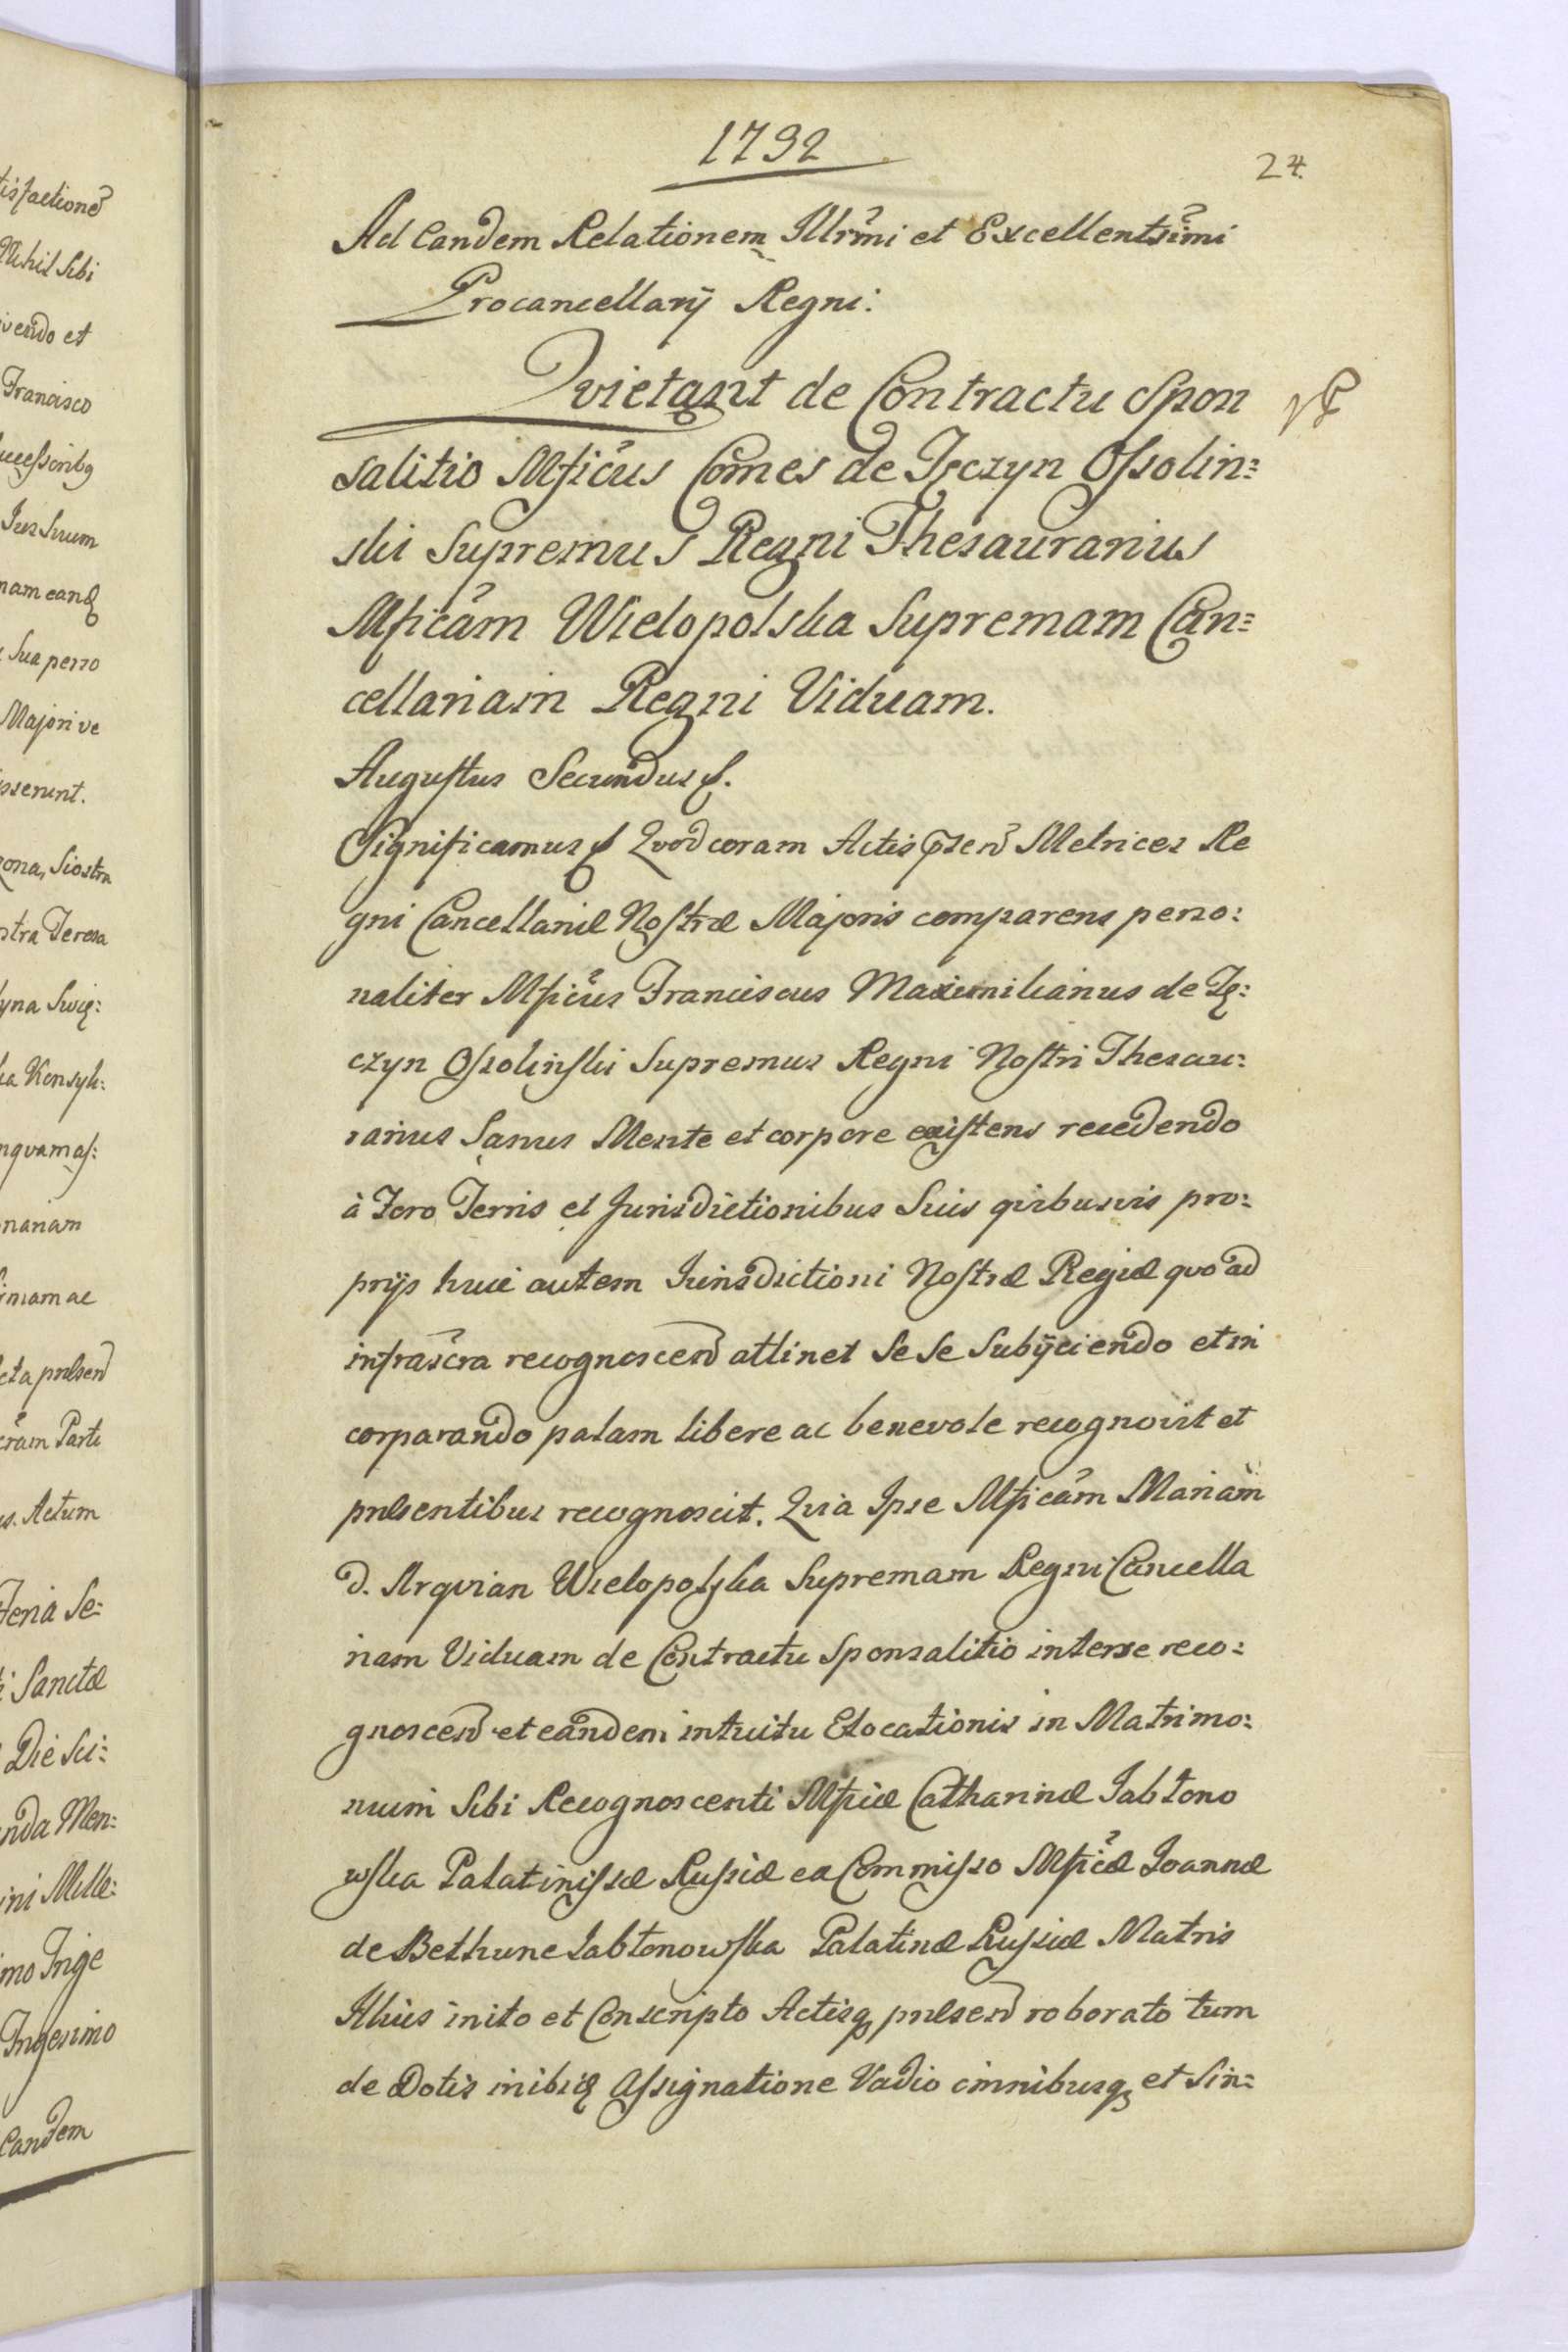 tisfactione
Nihil Sibi
vendo et
Francisco
uccessoribq
Jus Suum
nam eandq
Sua perso
Majori ve
isserunt.
zona, Siostra
ostra Teresa
yna Swię:
ka Konsyli:
nqvamaſ:
nanam
iniam ac
cta præsen
cram Parte
us. Actum
Feria Se:
i Sanctæ
Die Sci:
enda Men:
ini Mille:
imo Trige
Trigesimo
Eandem
1732
24.
Ad Eandem Relationem Illrmi et Excellentsimi
Procancellarij Regni:
Qvietant de Contractu Spon
salitio Mficus Comes de Tęczyn Oſsolin=
ski Supremus Regni Thesaurarius
Mficam Wielopolska Supremam Can=
cellariam Regni Viduam.
Auguſtus Secundus
Significamus Qvod coram Actis præsen Metrices Re
gni Cancellariæ Noſtræ Majoris comparens perso:
naliter Mficus Franciscus Maximilianus de Tę:
czyn Oſsolinſki Supremus Regni Noſtri Thesau:
rarius Sanus Mente et corpore exiſtens recedendo
à Foro Terris et Jurisdictionibus Suis qvibusvis pro:
prijs huic autem Jurisdictioni Noſtræ Regiæ qvo ad
infrascra recognoscen attinet Se Se Subijciendo et in
corparando palam libere ac benevole recognovit et
præsentibus recognoscit. Qvia Ipse Mficam Mariam
d. Arqvian Wielopolſka Supremam Regni Cancella
riam Viduam de Contractu Sponsalitio interse reco:
gnoscen et eandem intuitu Elocationis in Matrimo:
nium Sibi Recognoscenti Mficæ Catharinæ Jabłono
wſka Palatiniſsæ Ruſsiæ ex Commiſso Mficæ Joannæ
de Bethune Jabłonowſka Palatinæ Ruſsiæ Matris
Illius inito et Conscripto Actisq præsen roborato tum
de Dotis inibiq Aſsignatione Vadio omnibusq et Sin=